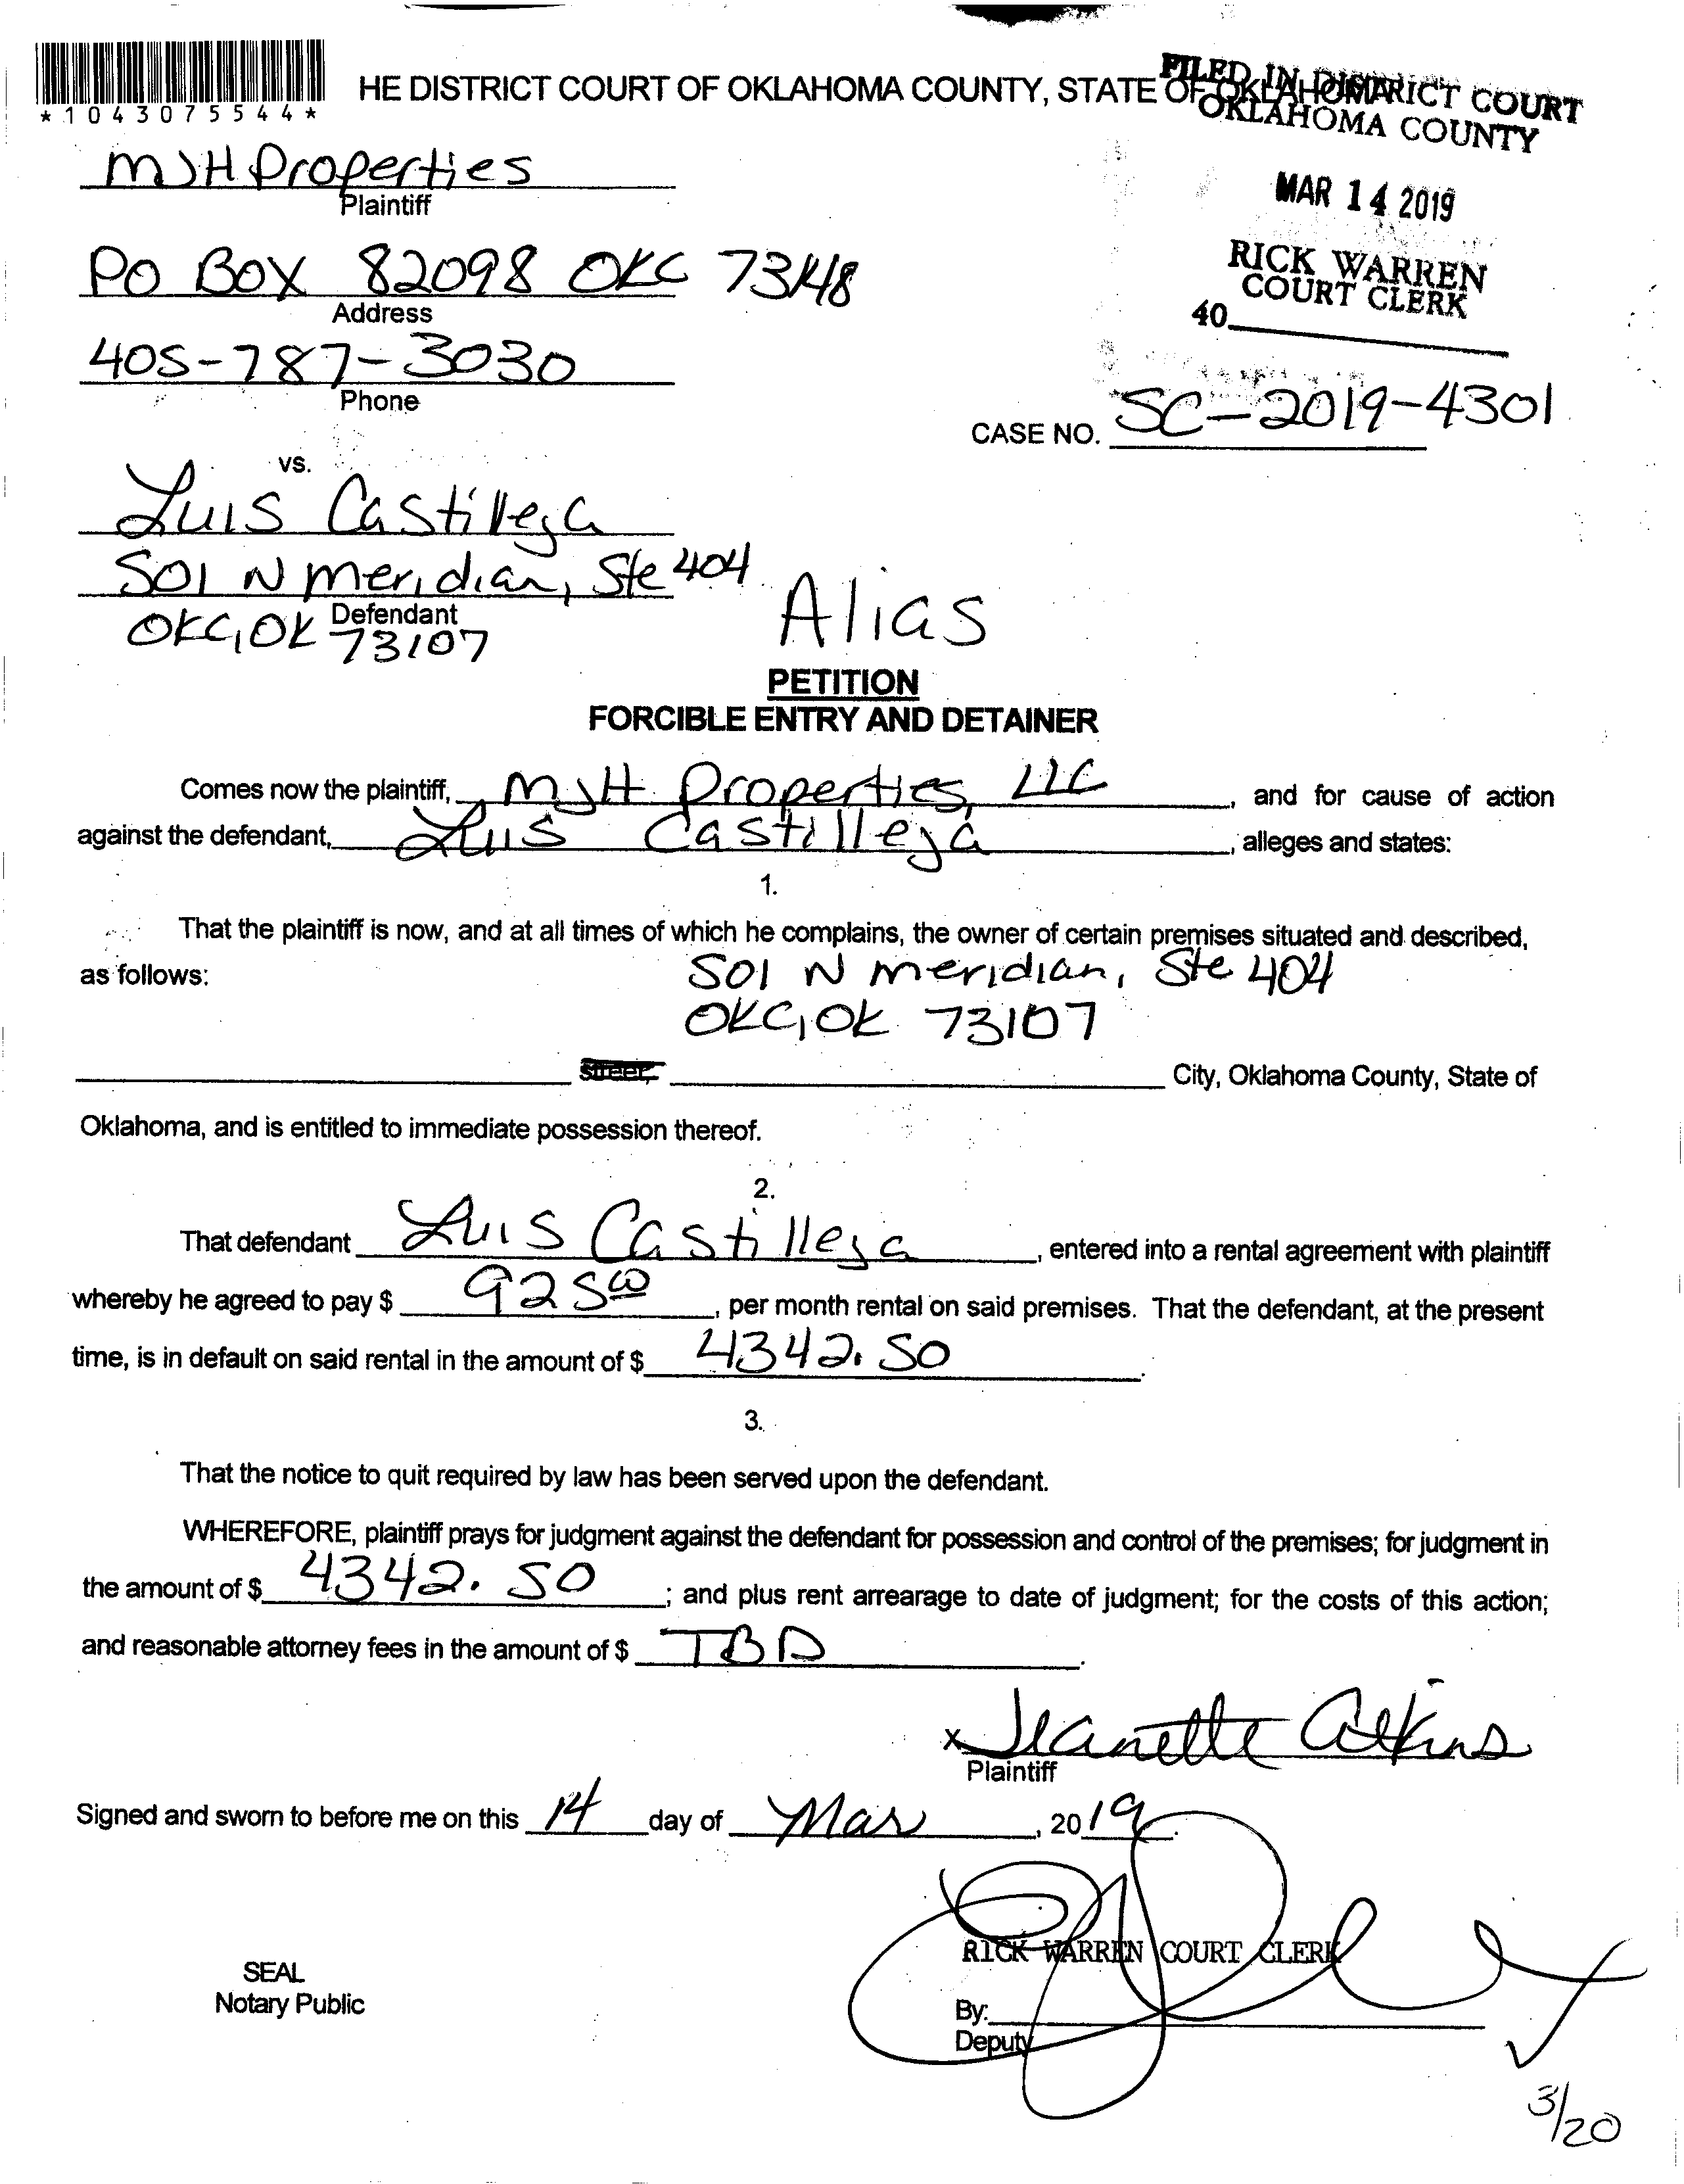 *1043075544*
HE DISTRICT COURT OF OKLAHOMA COUNTY, STATE OF OKLAHOMA
FILED IN DISTRICT COURT
OKLAHOMA COUNTY
MAR 14 2019
RICK WARREN
COURT CLERK
40
MJH Properties
Plaintiff
PO Box 82098 OKC 73148
Address
405-787-3030
Phone
CASE NO. SC-2019-4301
vs.
Luis Castilleja
501 N meridian, Ste 404
Defendant
OKC, OK 73107
Alias
PETITION
FORCIBLE ENTRY AND DETAINER
Comes now the plaintiff, MJH Properties, LLC, and for cause of action
against the defendant, Luis Castilleja, alleges and states:
1.
That the plaintiff is now, and at all times of which he complains, the owner of certain premises situated and described,
as follows: 501 N meridian, Ste 404
OKC, OK 73107
street, City, Oklahoma County, State of
Oklahoma, and is entitled to immediate possession thereof.
2.
That defendant Luis Castilleja, entered into a rental agreement with plaintiff
whereby he agreed to pay $ 925 00, per month rental on said premises. That the defendant, at the present
time, is in default on said rental in the amount of $ 4342.50.
3.
That the notice to quit required by law has been served upon the defendant.
WHEREFORE, plaintiff prays for judgment against the defendant for possession and control of the premises; for judgment in
the amount of $ 4342.50; and plus rent arrearage to date of judgment; for the costs of this action;
and reasonable attorney fees in the amount of $ TBD.
x Jeanette Atkins
Plaintiff
Signed and sworn to before me on this 14 day of Mar, 2019.
RICK WARREN COURT CLERK
SEAL
Notary Public
By:
Deputy
3/20